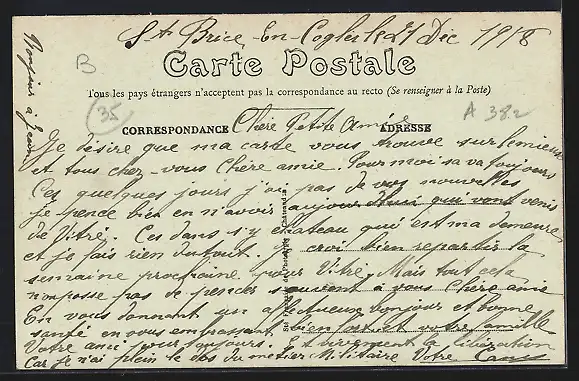 St Brice-En-Cogles le 21 Déc 1918
B
Carte Postale
Tous les pays étrangers n'acceptent pas la correspondance au recto (Se renseigner à la Poste)
35
A 382
CORRESPONDANCE
ADRESSE
Bonjour à Jean
Chère Petite Amie
Je désire que ma carte vous trouve sur le mieux
et tous chez-vous Chère amie. Pour moi sa va toujours
Ces quelques jours j'ai pas de vos nouvelles
je pence bien en n'avoir aujourd'hui qui vont venir
de Vitré. Ces dans s'y chateau qui est ma demeure
et je fais rien du tout. je croi bien repartir la
semaine prochaine pour Vitré. Mais tout cela
n'empêche pas de pencer souvent à vous Chère amie
En vous donnant un affectueux bonjour et bonne
santé en vous embrassant bien fort et votre famille
Votre ami pour toujours. Et vivement la libération
Car je n'ai plein le dos du métier Militaire Votre